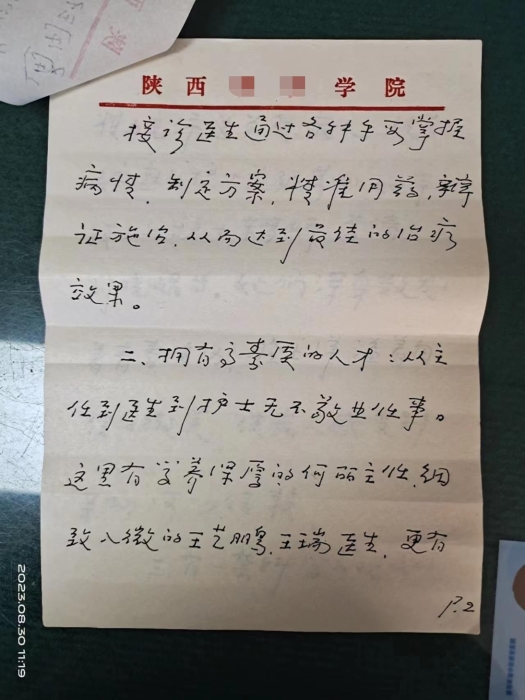 陕西学院
接诊医生通过各种手段掌握
病情，制定方案，精准用药，辩
证施治，从而达到最佳的治疗
效果。
二、拥有高素质的人才：从主
任到医生到护士无不敬业任事。
这里有学养深厚的何丽主任，细
致入微的王艺鹏、王瑞医生，更有
P.2
2023.08.30 11:19